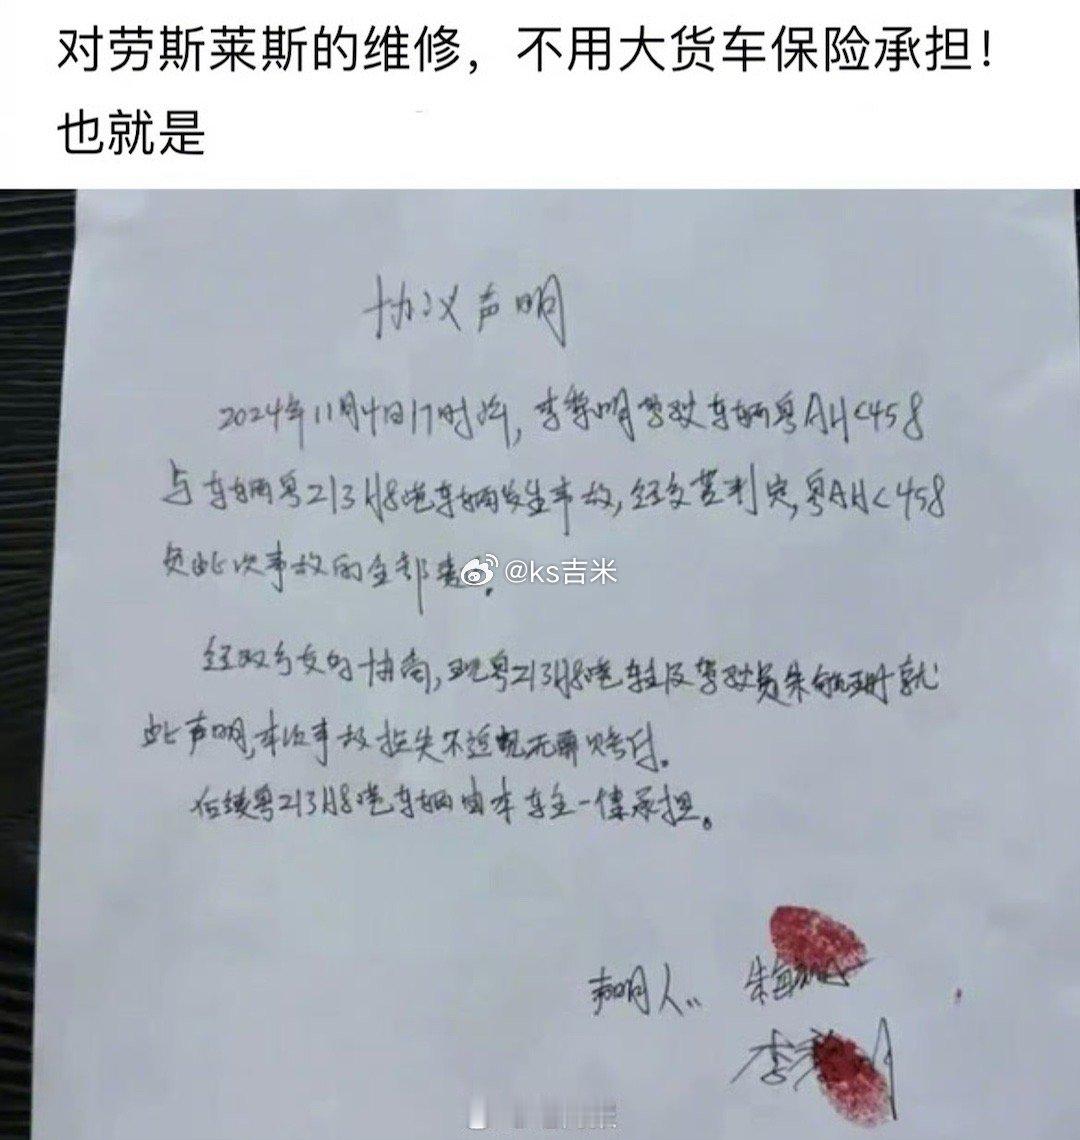 对劳斯莱斯的维修，不用大货车保险承担！
也就是
协议声明
2024年11月4日17时许，李黎明驾驶车辆粤AH<458
与车辆粤Z13H8港车辆发生事故，经交警判定，粤AH<458
负此次事故的全部责
@ks吉米
经双方友好协商，现粤Z13H8港车主及驾驶员朱 就
此声明，本次事故损失不追究无需赔付。
后续粤Z13H8港车辆由本车主一律承担。
声明人：朱
李 明